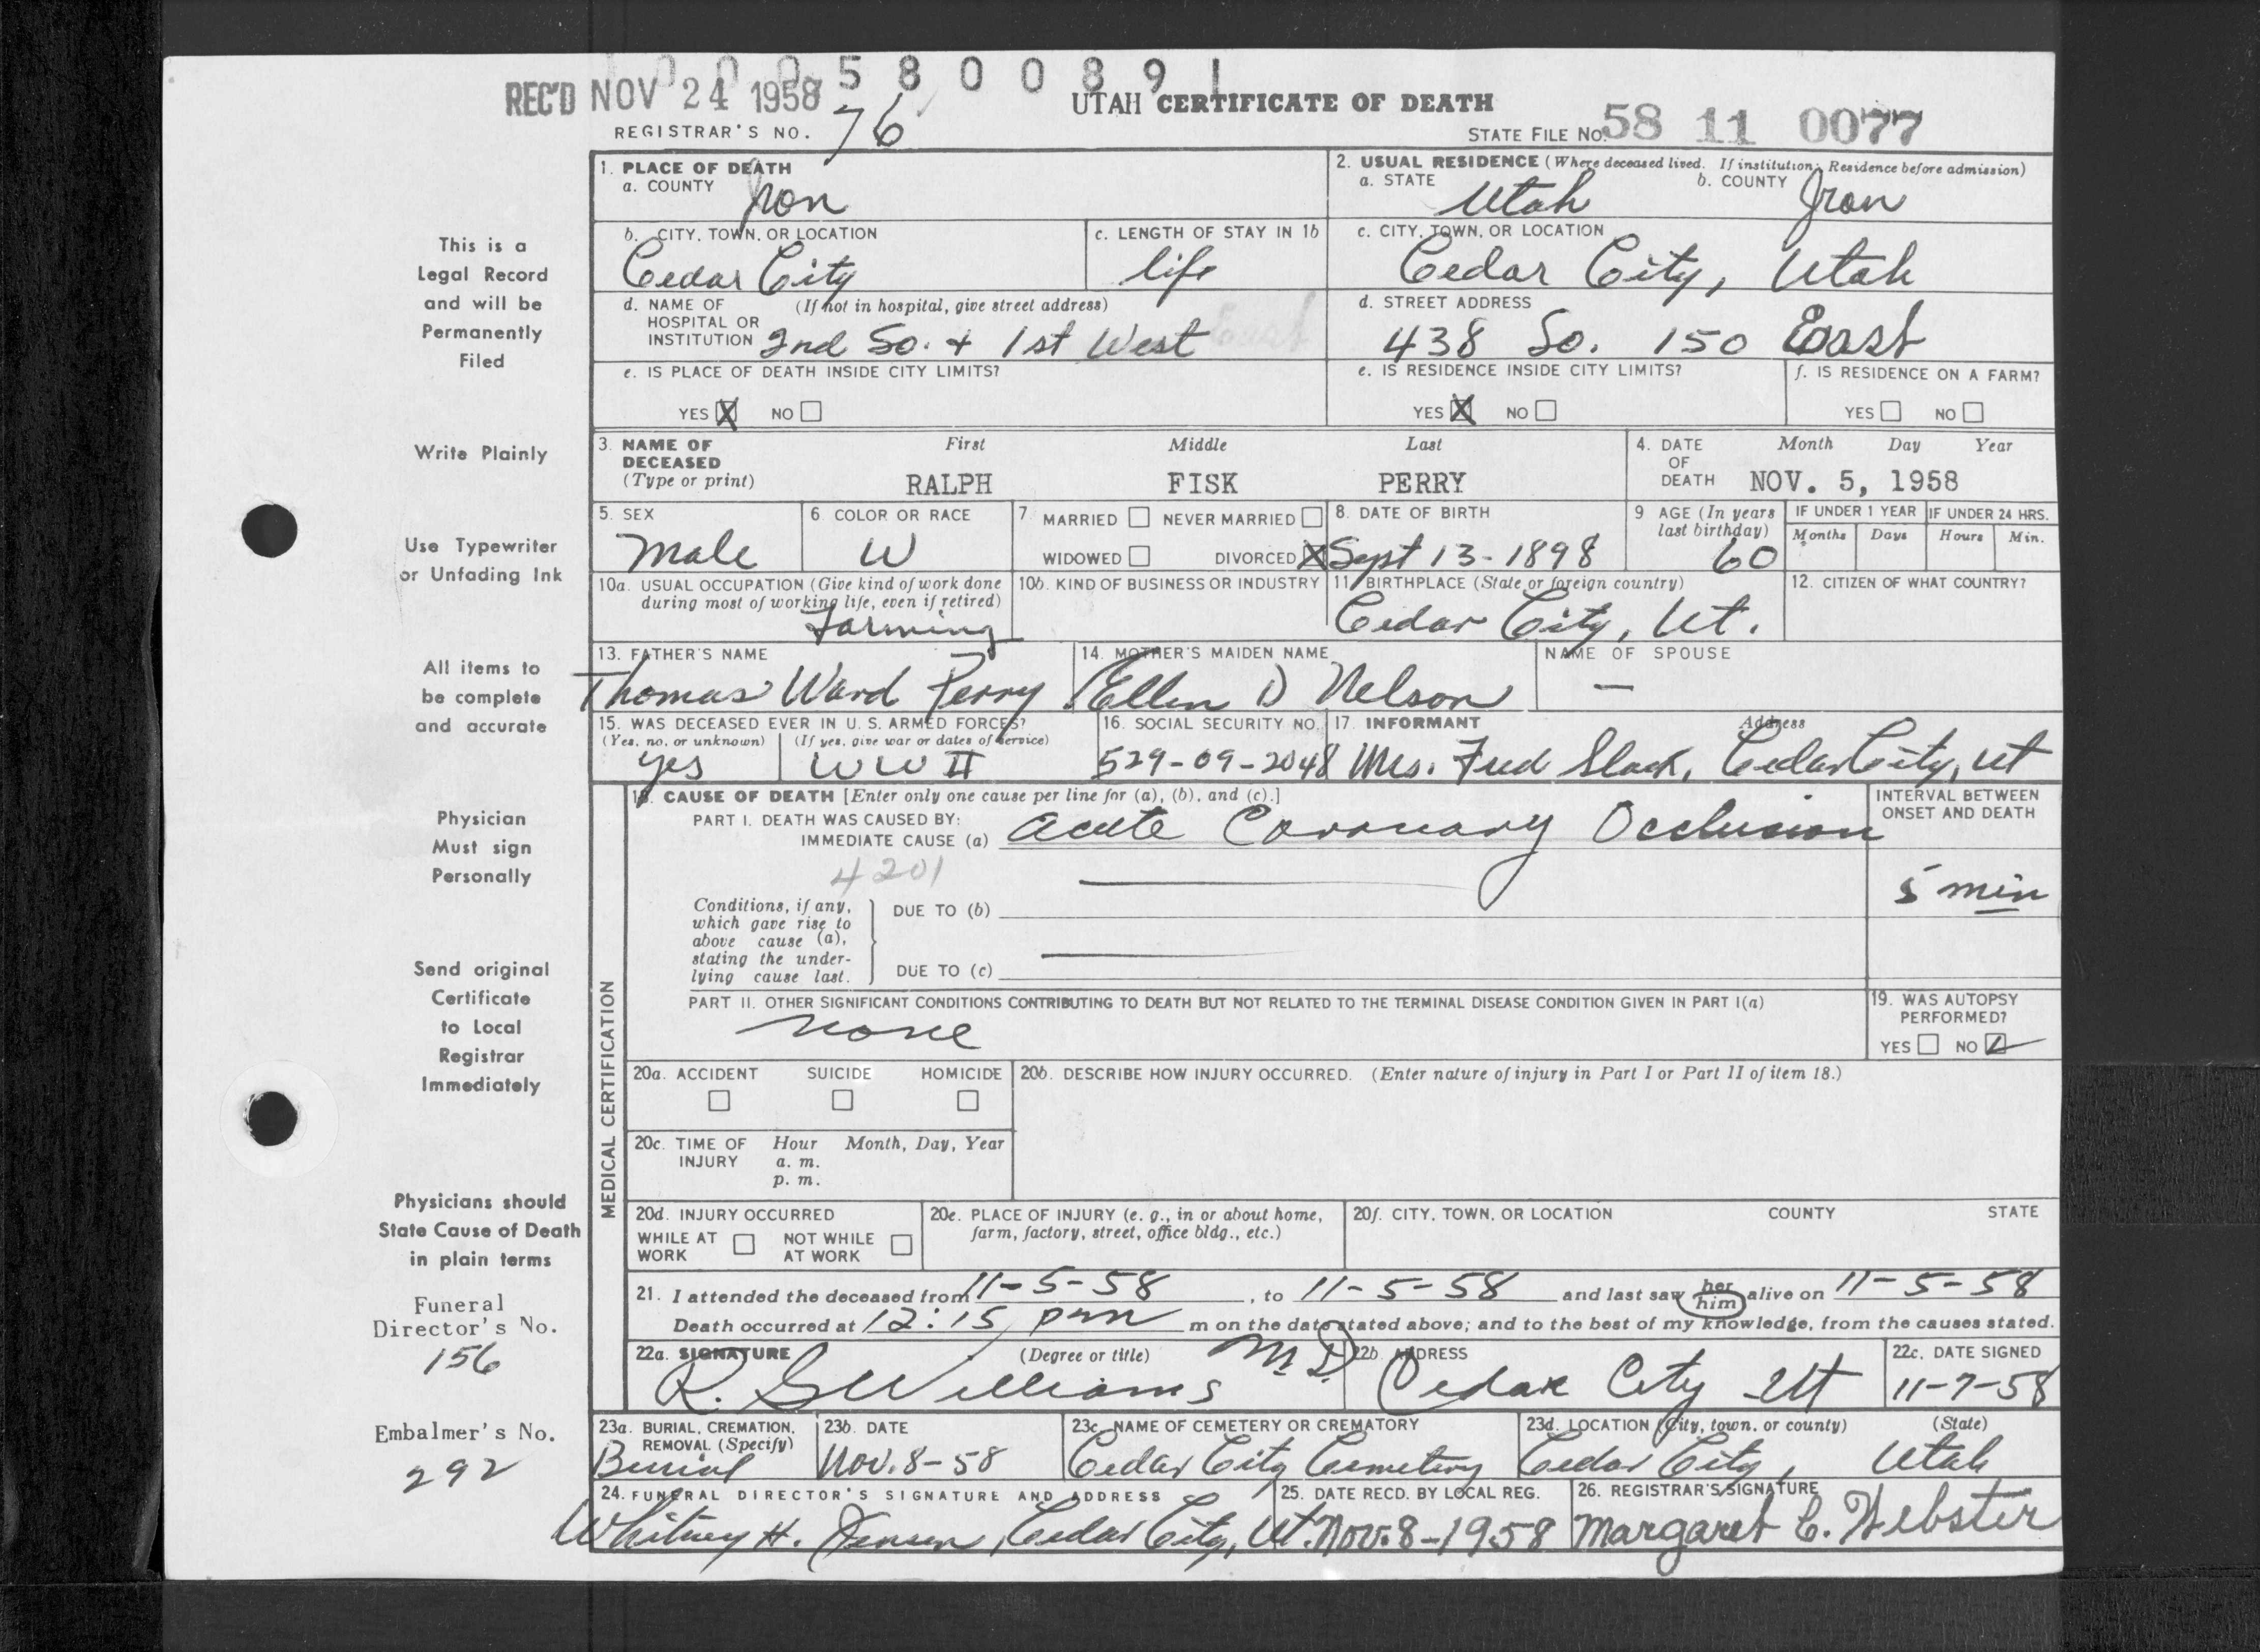 0 0 0 5 8 0 0 8 9 1
REC'D NOV 24 1958
UTAH CERTIFICATE OF DEATH
REGISTRAR'S NO. 76
STATE FILE NO. 58 11 0077
1. PLACE OF DEATH
a. COUNTY Iron
2. USUAL RESIDENCE (Where deceased lived. If institution: Residence before admission)
a. STATE Utah b. COUNTY Iron
b. CITY, TOWN, OR LOCATION Cedar City
c. LENGTH OF STAY IN 1b life
c. CITY, TOWN, OR LOCATION Cedar City, Utah
d. NAME OF HOSPITAL OR INSTITUTION (If not in hospital, give street address) 2nd So. + 1st West
d. STREET ADDRESS 438 So. 150 East
e. IS PLACE OF DEATH INSIDE CITY LIMITS?
YES X NO
e. IS RESIDENCE INSIDE CITY LIMITS?
YES X NO
f. IS RESIDENCE ON A FARM?
YES NO
3. NAME OF DECEASED (Type or print)
First Middle Last
RALPH FISK PERRY
4. DATE OF DEATH Month Day Year
NOV. 5, 1958
5. SEX Male
6. COLOR OR RACE W
7. MARRIED NEVER MARRIED
WIDOWED DIVORCED X
8. DATE OF BIRTH Sept 13-1898
9 AGE (In years last birthday) 60
IF UNDER 1 YEAR Months Days
IF UNDER 24 HRS. Hours Min.
10a. USUAL OCCUPATION (Give kind of work done during most of working life, even if retired) Farming
10b. KIND OF BUSINESS OR INDUSTRY
11. BIRTHPLACE (State or foreign country) Cedar City, Ut.
12. CITIZEN OF WHAT COUNTRY?
13. FATHER'S NAME Thomas Ward Perry
14. MOTHER'S MAIDEN NAME Ellen D Nelson
NAME OF SPOUSE —
15. WAS DECEASED EVER IN U. S. ARMED FORCES?
(Yes, no, or unknown) yes
(If yes, give war or dates of service) WW II
16. SOCIAL SECURITY NO. 529-09-2048
17. INFORMANT Address
Mrs. Fred Slack, Cedar City, Ut
MEDICAL CERTIFICATION
18. CAUSE OF DEATH [Enter only one cause per line for (a), (b), and (c).]
PART I. DEATH WAS CAUSED BY:
IMMEDIATE CAUSE (a) Acute Coronary Occlusion
INTERVAL BETWEEN ONSET AND DEATH
5 min
4201
Conditions, if any, which gave rise to above cause (a), stating the underlying cause last.
DUE TO (b)
DUE TO (c)
PART II. OTHER SIGNIFICANT CONDITIONS CONTRIBUTING TO DEATH BUT NOT RELATED TO THE TERMINAL DISEASE CONDITION GIVEN IN PART I(a)
none
19. WAS AUTOPSY PERFORMED?
YES NO
20a. ACCIDENT SUICIDE HOMICIDE
20b. DESCRIBE HOW INJURY OCCURRED. (Enter nature of injury in Part I or Part II of item 18.)
20c. TIME OF INJURY Hour Month, Day, Year
a. m.
p. m.
20d. INJURY OCCURRED
WHILE AT WORK NOT WHILE AT WORK
20e. PLACE OF INJURY (e. g., in or about home, farm, factory, street, office bldg., etc.)
20f. CITY, TOWN, OR LOCATION COUNTY STATE
21. I attended the deceased from 11-5-58, to 11-5-58 and last saw her him alive on 11-5-58
Death occurred at 12:15 pm m on the date stated above; and to the best of my knowledge, from the causes stated.
22a. SIGNATURE (Degree or title)
R. G Williams M.D.
22b ADDRESS Cedar City Ut
22c. DATE SIGNED 11-7-58
23a. BURIAL, CREMATION, REMOVAL (Specify) Burial
23b. DATE Nov. 8-58
23c. NAME OF CEMETERY OR CREMATORY Cedar City Cemetery
23d. LOCATION (City, town, or county) (State)
Cedar City, Utah
24. FUNERAL DIRECTOR'S SIGNATURE AND ADDRESS
Whitney H. Jensen, Cedar City, Ut.
25. DATE RECD. BY LOCAL REG. Nov. 8-1958
26. REGISTRAR'S SIGNATURE Margaret C. Webster
This is a
Legal Record
and will be
Permanently
Filed
Write Plainly
Use Typewriter
or Unfading Ink
All items to
be complete
and accurate
Physician
Must sign
Personally
Send original
Certificate
to Local
Registrar
Immediately
Physicians should
State Cause of Death
in plain terms
Funeral
Director's No.
156
Embalmer's No.
292